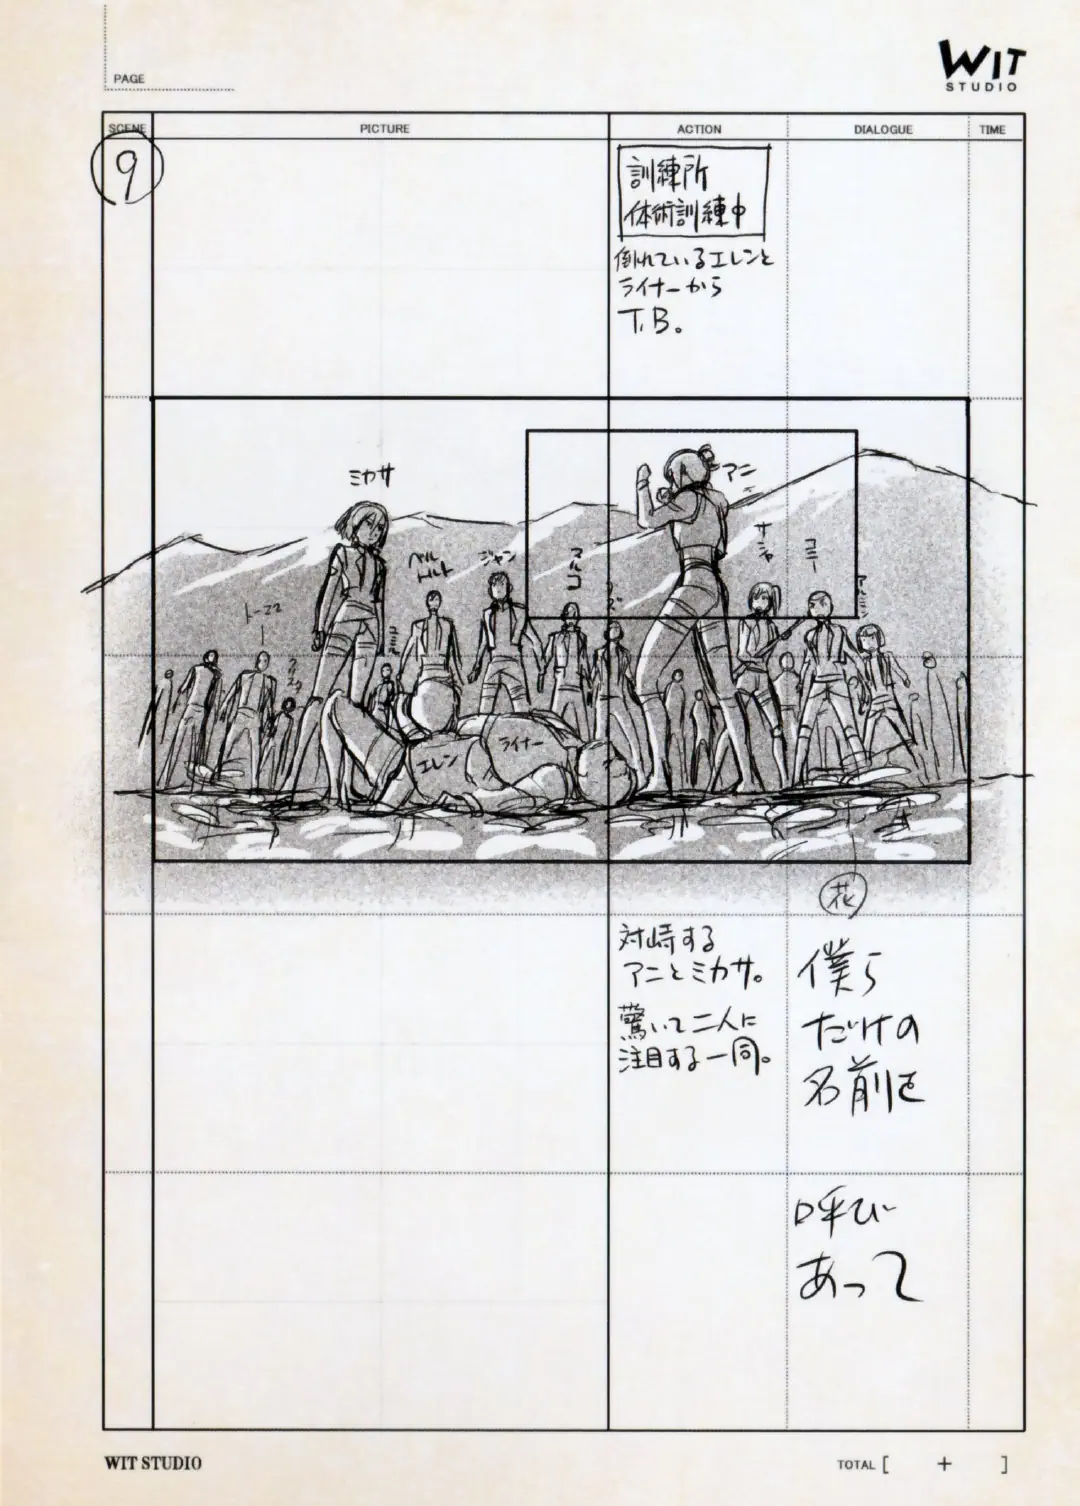 PAGE
WIT
STUDIO
SCENE
PICTURE
ACTION
DIALOGUE
TIME
9
訓練所
体術訓練中
倒れているエレンと
ライナーから
T.B。
ミカサ
アニ
ベル
トルト
ジャン
マルコ
サシャ
コニー
アルミン
トーマス
ユミル
エレン
ライナー
花
対峙する
アニとミカサ。
驚いて二人に
注目する一同。
僕ら
だけの
名前を
呼び
あって
WIT STUDIO
TOTAL [ + ]